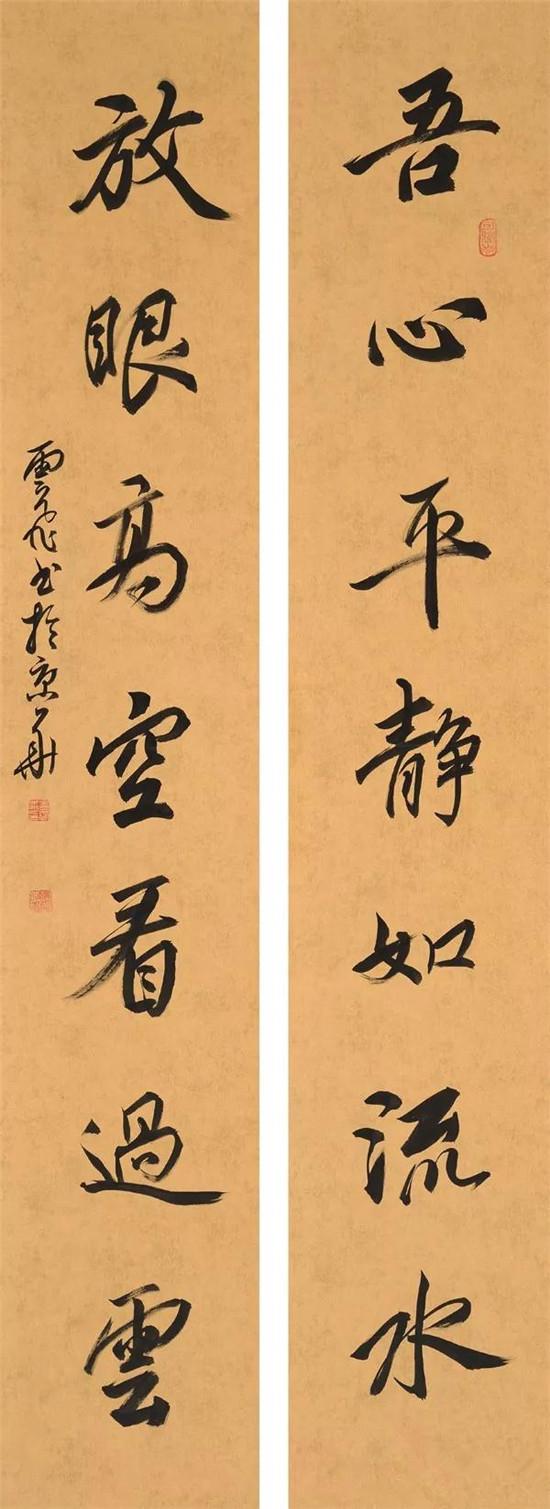 吾心平静如流水
放眼高空看過雲
書於京華